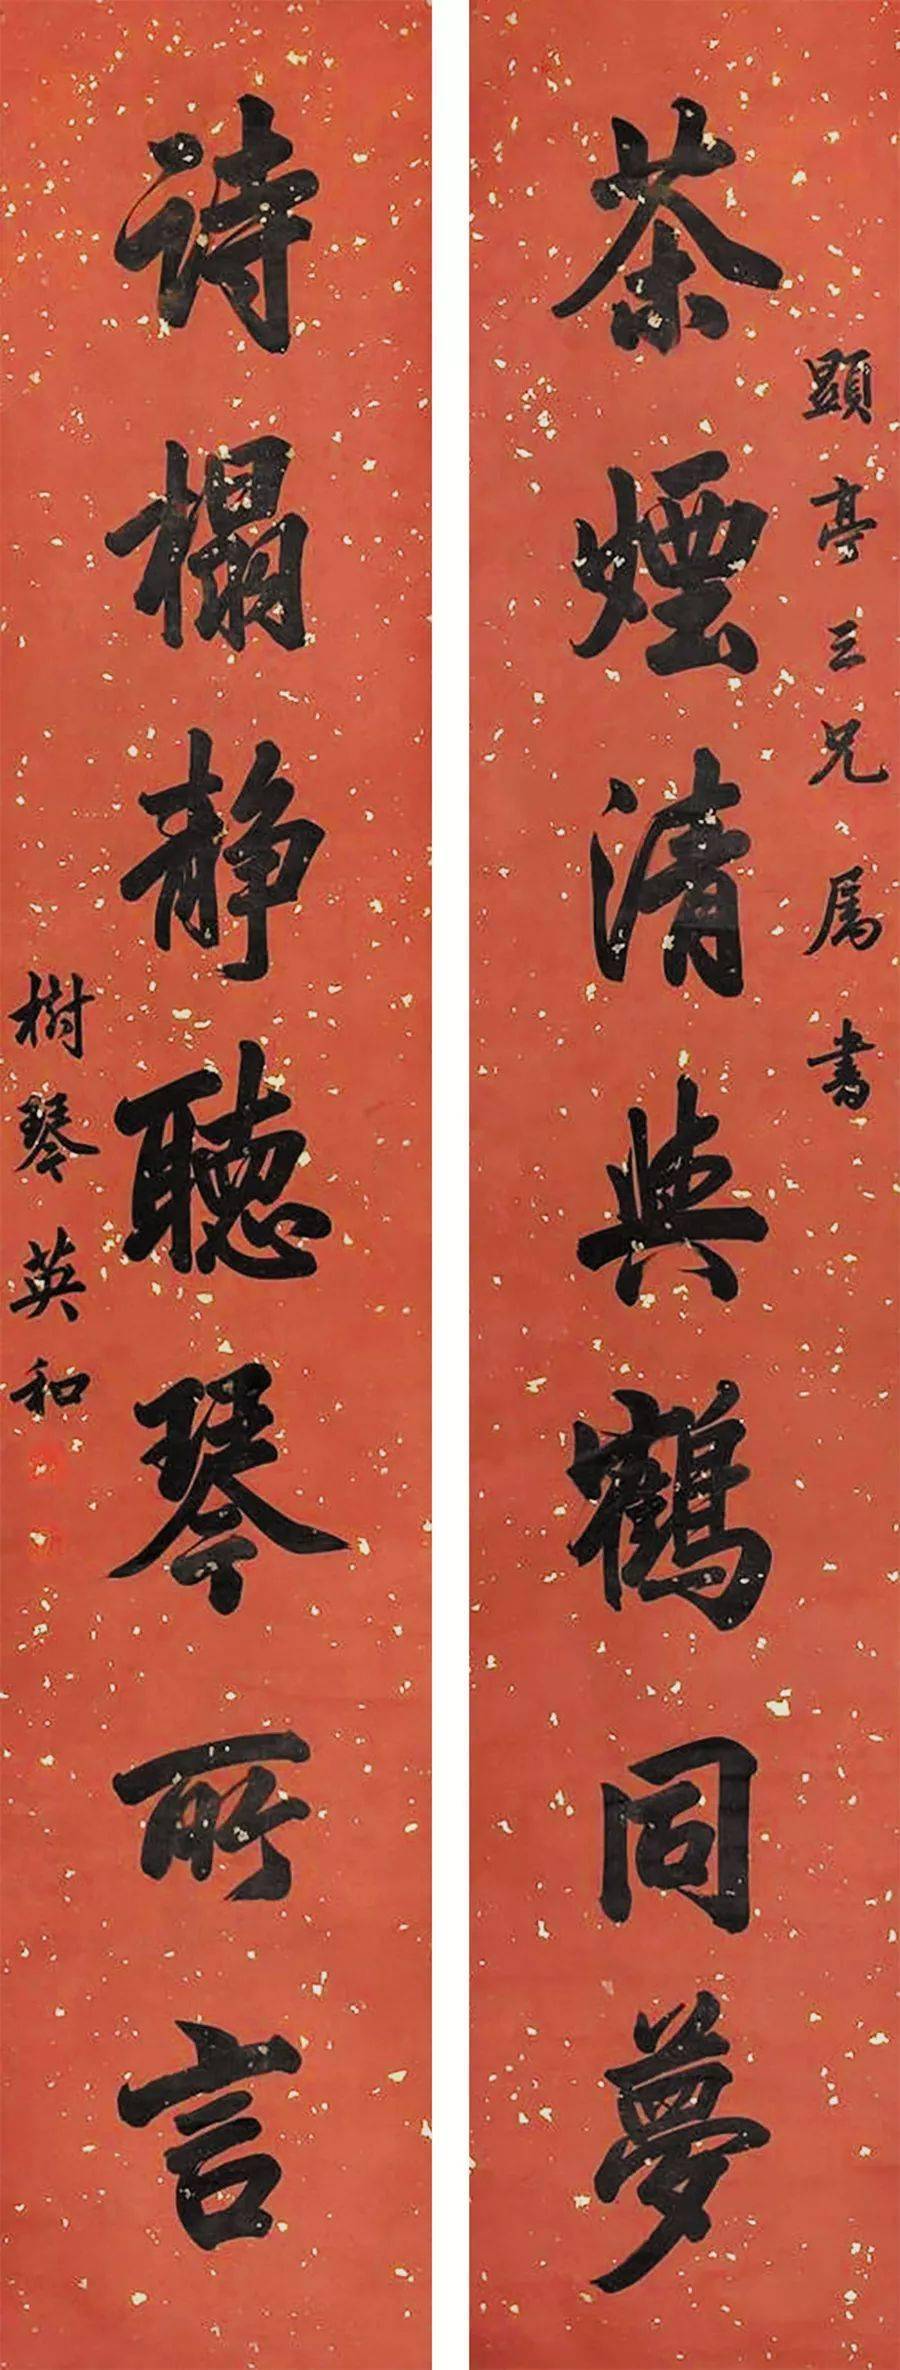 茶煙清與鶴同夢
顯亭三兄属書
詩榻静聽琴所言
樹琴英和